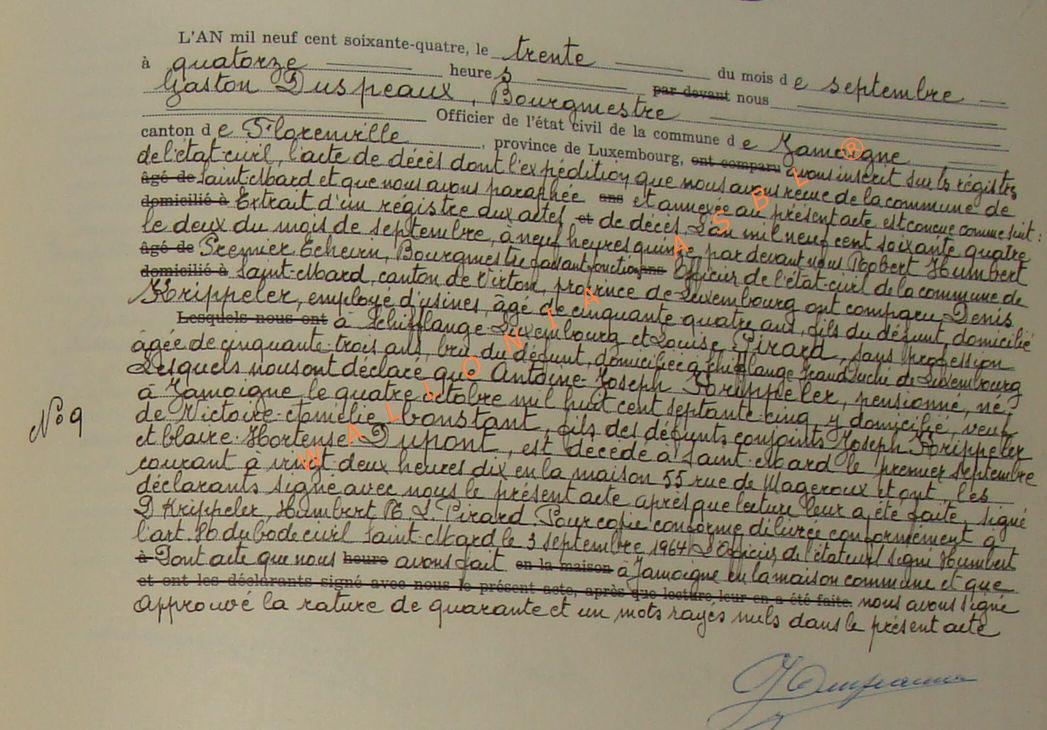 L'AN mil neuf cent soixante-quatre, le trente du mois de septembre
à quatorze heures par devant nous
Gaston Duspeaux, Bourgmestre
Officier de l'état civil de la commune de Jamoigne
canton de Florenville, province de Luxembourg, ont comparu avons inscrit sur les régistres
de l'état-civil, l'acte de décès dont l'expédition que nous avons reçue de la commune de
âgé de Saint-Mard et que nous avons paraphée ans et annexée au présent acte est conçue comme suit :
domicilié à Extrait d'un régistre aux actes et de décès. L'an mil neuf cent soixante quatre
le deux du mois de septembre, à neuf heures quinze, par devant nous Robert Humbert
âgé de Premier Echevin, Bourgmestre faisant fonction ans Officier de l'état-civil de la commune de
domicilié à Saint-Mard, canton de Virton, province de Luxembourg ont comparu Denis
Krippeler, employé d'usines, âgé de cinquante quatre ans, fils du défunt, domicilié
Lesquels nous ont à Schifflange-Luxembourg et Louise Pirard, sans profession
âgée de cinquante-trois ans, bru du défunt, domiciliée à Schifflange Grand Duché de Luxembourg
Lesquels nous ont déclaré que Antoine-Joseph Krippeler, pensionné, né
à Jamoigne, le quatre octobre mil huit cent septante-cinq, y domicilié, veuf
de Victoire-Amélie Constant, fils des défunts conjoints Joseph Krippeler
et Claire-Hortense Dupont, est décédé à Saint-Mard le premier septembre
courant à vingt deux heures dix en la maison 55 rue de Mageroux et ont, les
déclarants signé avec nous le présent acte après que lecture leur a été faite, signé
D Krippeler, Humbert R. L. Pirard. Pour copie conforme délivrée conformément à
l'art. 80 du Code civil Saint-Mard le 3 septembre 1964 L'Officier de l'état civil signé Humbert
à Dont acte que nous heure avons fait en la maison à Jamoigne en la maison commune et que
et ont les déclarants signé avec nous le présent acte, après que lecture leur en a été faite. nous avons signé
Approuvé la rature de quarante et un mots rayés nuls dans le présent acte
N° 9
WALLONIA ASBL ®